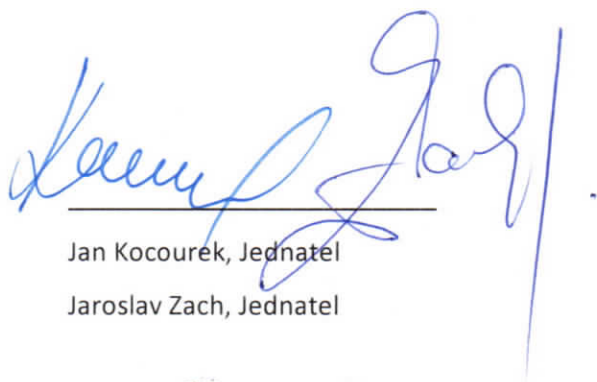 Jan Kocourek, Jednatel
Jaroslav Zach, Jednatel